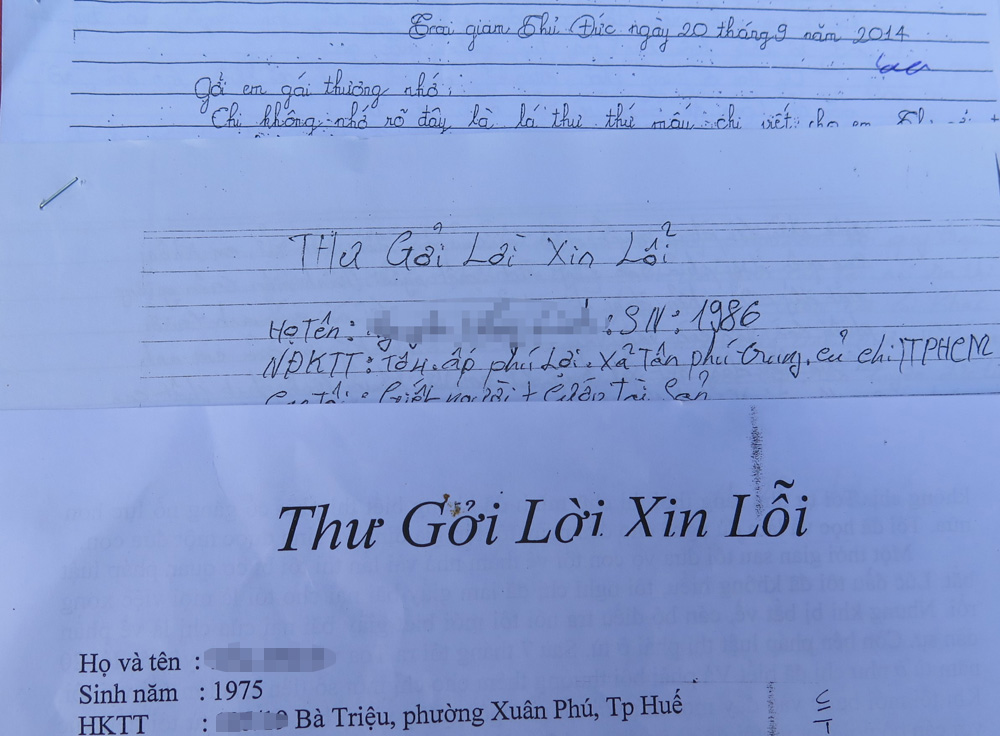 Trại giam Thủ Đức ngày 20 tháng 9 năm 2014
Gởi em gái thương nhớ:
Chị không nhớ rõ đây là lá thư thứ mấy chị viết cho em
THƯ Gởi Lời Xin Lỗi
Họ Tên: : SN: 1986
NĐKTT: Tổ 4. ấp phú Lợi. Xã Tân phú trung. củ chi TPHCM
Giết người + Cướp Tài Sản
Thư Gởi Lời Xin Lỗi
Họ và tên :
Sinh năm : 1975
HKTT : Bà Triệu, phường Xuân Phú, Tp Huế